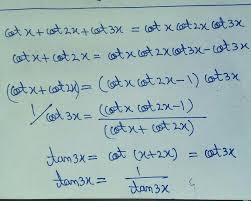 cot x + cot 2x + cot 3x = cot x cot 2x cot 3x
cot x + cot 2x = cot x cot 2x cot 3x - cot 3x
(cot x + cot 2x) = (cot x cot 2x - 1) cot 3x
1/cot 3x = (cot x cot 2x - 1)/(cot x + cot 2x)
tan 3x = cot (x + 2x) = cot 3x
tan 3x = 1/tan 3x